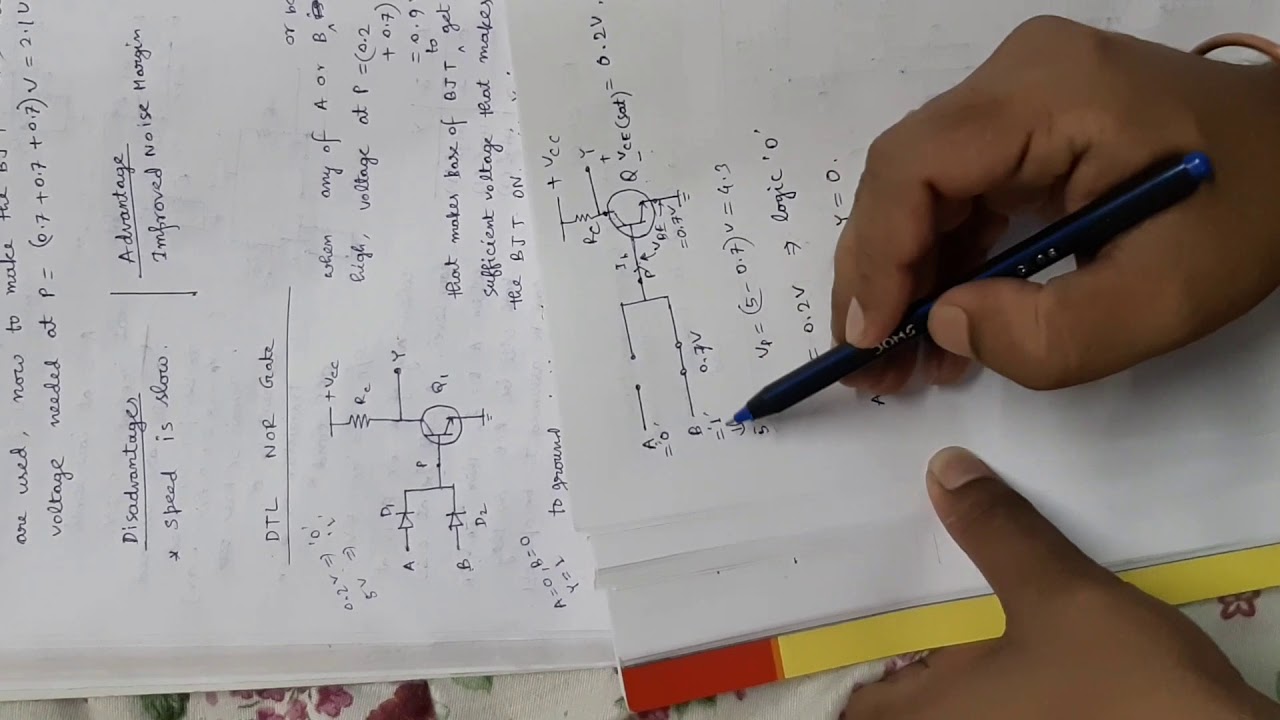 are used, now to make the BJT
voltage needed at P = (0.7 + 0.7 + 0.7) V = 2.1 V
Disadvantages
* Speed is slow.
Advantage
Improved Noise Margin
DTL NOR Gate
0.2V ⇒ '0'
5V ⇒ '1'
+Vcc
Rc
Y
A
D1
P
Q1
B
D2
when any of A or B is
high, voltage at P = (0.2
+ 0.7)
= 0.9
that makes base of BJT to get
sufficient voltage that makes
the BJT ON.
A=0, B=0
Y=1
to ground
+ Vcc
Rc
Y
A
='0'
Ib
P
Q
+
VCE(sat) = 0.2V.
-
+
VBE
-
=0.7V
B
='1'
0.7V
5
VP = (5-0.7) V = 4.3
= 0.2V ⇒ logic '0'
A
Y = 0.